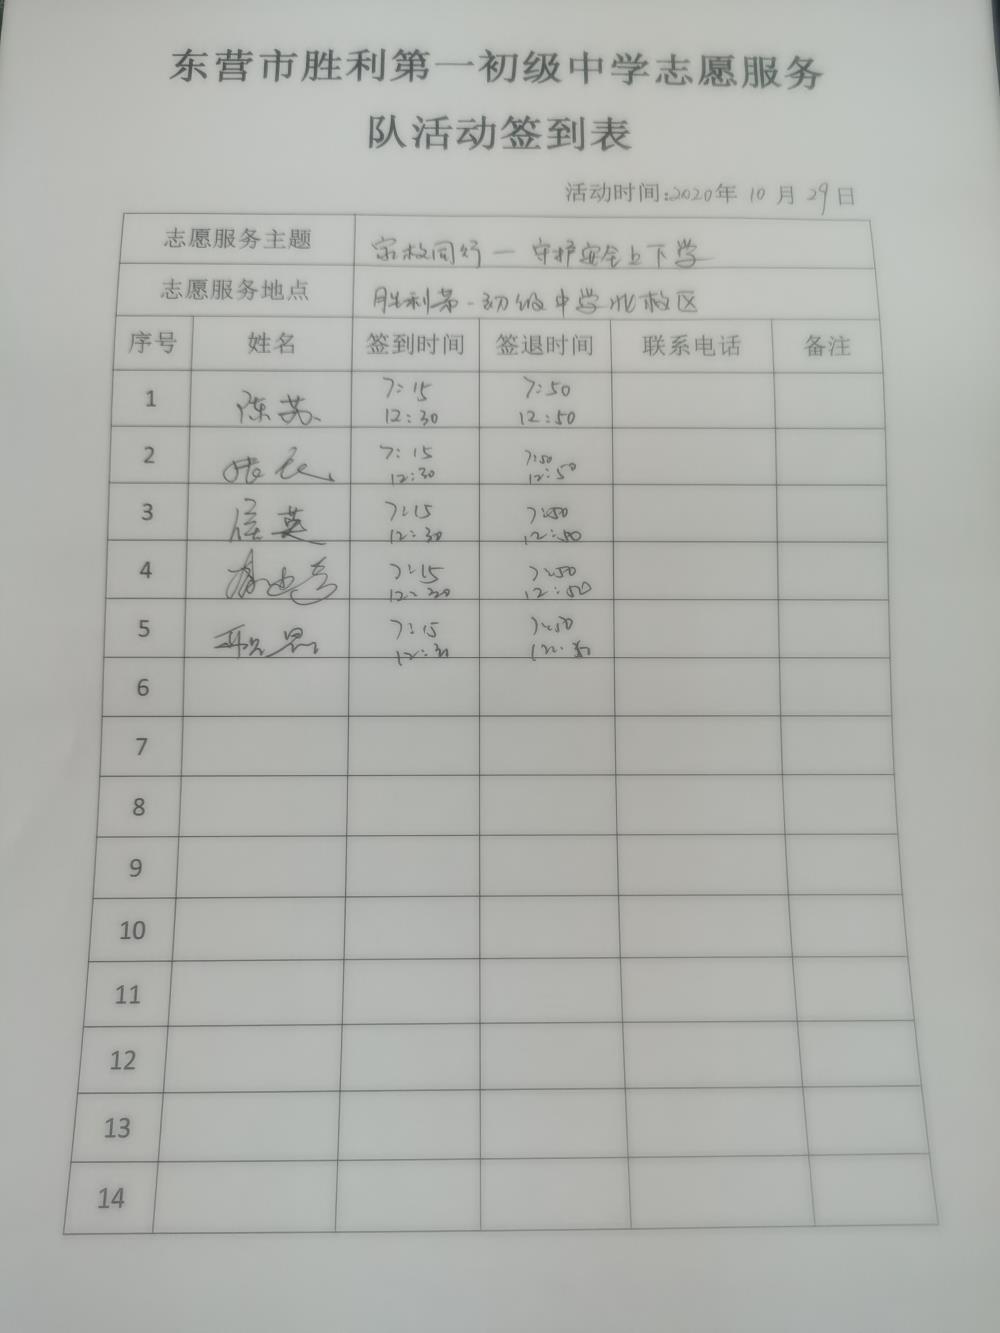 东营市胜利第一初级中学志愿服务
队活动签到表
活动时间:2020年 10 月 29 日
志愿服务主题 家校同行一守护安全上下学
志愿服务地点 胜利第一初级中学北校区
序号 姓名 签到时间 签退时间 联系电话 备注
1 陈苏 7:15 7:50
12:30 12:50
2 7:15 7:50
12:30 12:50
3 崔英 7:15 7:50
12:30 12:50
4 7:15 7:50
12:30 12:50
5 7:15 7:50
12:30 12:50
6
7
8
9
10
11
12
13
14